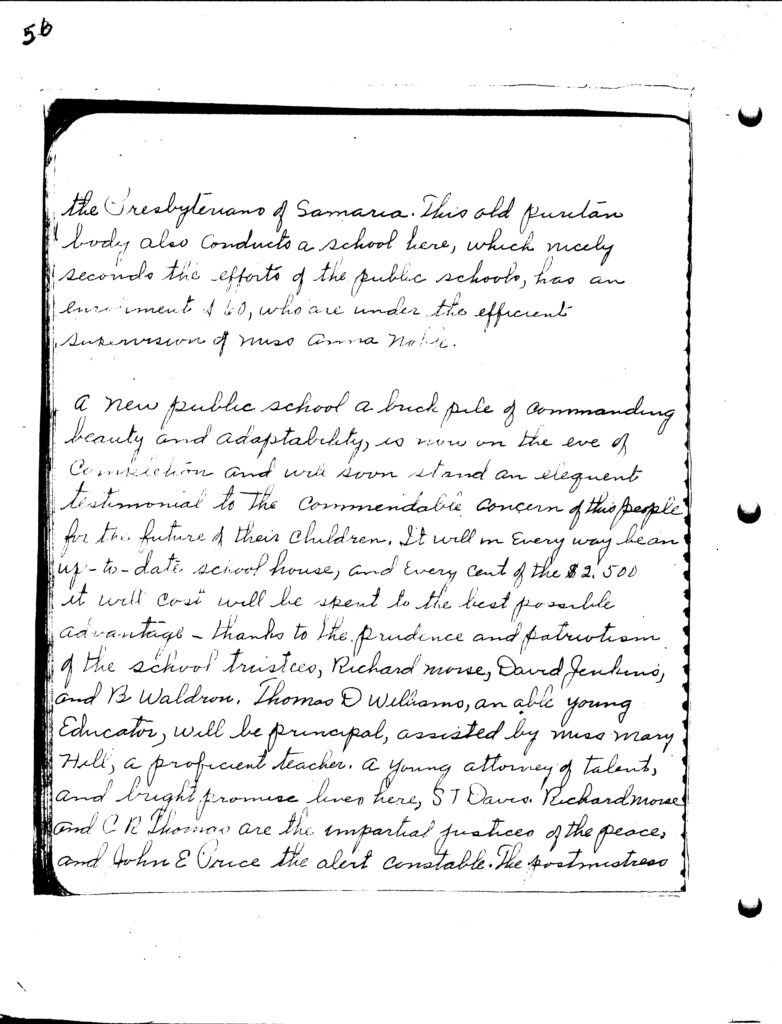 56
the Presbyterians of Samaria. This old puritan
body also conducts a school here, which nicely
seconds the efforts of the public schools, has an
enrolment of 60, who are under the efficient
supervision of miss anna Noble.
a new public school a brick pile of commanding
beauty and adaptability, is now on the eve of
Completion and will soon stand an elequent
testimonial to the commendable concern of this people
for the future of their children. It will in Every way be an
up-to-date school house, and Every cent of the $2.500
it will cost will be spent to the best possible
advantage - thanks to the prudence and patriotism
of the school trustees, Richard morse, David Jenkins,
and B Waldron. Thomas D Williams, an able young
Educator, will be principal, assisted by miss mary
Hill, a proficient teacher. a young attorney of talent,
and bright promise lives here, S T Davis. Richard morse
and C R Thomas are the impartial justices of the peace,
and John E Price the alert constable. The postmistress